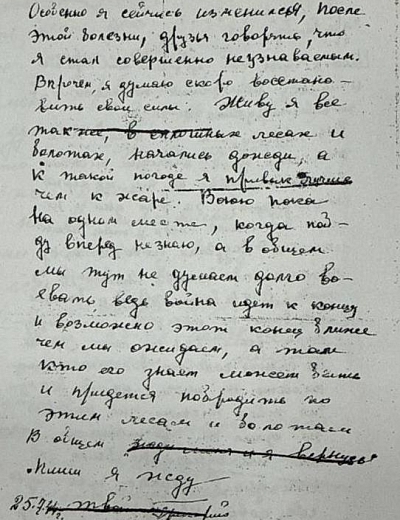 Особенно я сейчась изменился, после
этой болезни, друзья говорять, что
я стал совершенно неузнаваемым.
Впрочем, я думаю скоро восстано-
вить свои силы. Живу я все
также, в сплошных лесах и
болотах, начались дожди, а
к такой погоде я привык
чем к жаре. Воюю пока
на одном месте, когда пой-
ду вперед незнаю, а в общем
мы тут не думаем долго во-
евать ведь война идет к концу
и возможно этот конец ближе
чем мы ожидаем, а там
кто его знает может быть
и придется побродить по
этим лесам и болотам
В общем я вернусь
Пиши я жду
твой